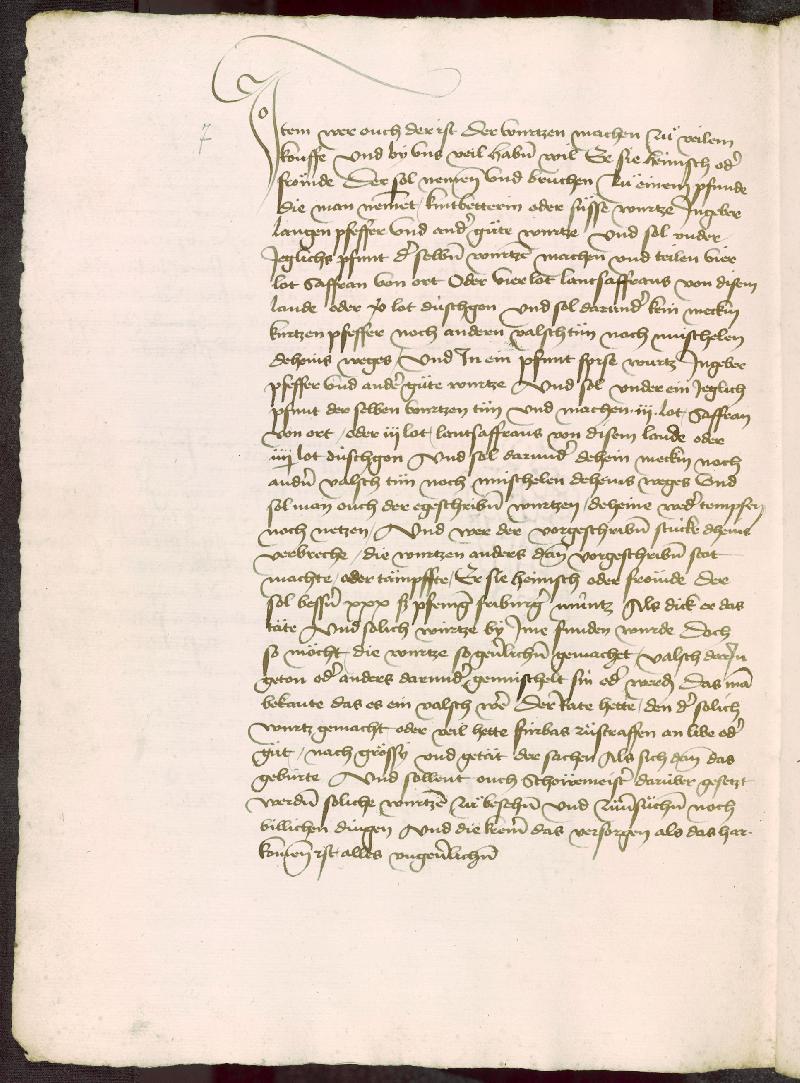 7
Item wer ouch der ist der wurtzen machen zů veilem
kouffe Vnd by vns veil habn̄ wil Er sie heimisch od'
frömde Der sol nemen vnd bruchen Zů einem pfunde
die man nem̄et kintbetterin oder süsse wurtze Ingeber
langen pfeffer vnd and' gůte wurtze Vnd sol vnder
Jeglichs pfunt d' selbn̄ wurtzē machen vnd teilen vier
lot Saffran von ort Oder vier lot lantsaffrans von disem
lande oder lot duschgon Vnd sol darund' kein meckin
kurtzen pfeffer noch andern valsch tůn noch mischelen
deheins weges Vnd In ein pfunt wurtz Ingeber
pfeffer vnd ander gůte wurtze Vnd sol vnder ein Jeglich
pfunt der selben wurtzen tůn vnd machen .iij. lot Saffran
von ort / oder iij lot lantsaffrans von disem lande oder
iiij lot duschgon Vnd sol darund' dehein meckin noch
andn̄ valsch tůn noch mischelen deheins weges Vnd
sol man ouch der egeschribn̄ wurtzen / deheine wed' tempfen
noch netzen / Vnd wer der vorgeschribn̄ stücke dheins
verbreche / die wurtzen anders dan̄ vorgeschribn̄ stat
machte / oder tämpffte / Er sie heimisch oder frömde Der
sol bessn̄ xxx ß pfenig friburg' müntz Als dick er das
täte Vnd solich wurtze by Ime funden wurde Doch
so möcht die wurtze so geu'lichn̄ gemachet / valsch dar Jn
geton od' anders darund' gemischelt sin od' werdn̄ das mā
bekante das es ein valsch wē Der Rate hette / den d' solich
wurtz gemacht oder veil hette fürbas zůstraffen an libe od'
gůt / nach grössy vnd getät der sachen Als sich dan̄ das
gebürte Vnd sollent ouch Schowemeist' darüber gesetzt
werdn̄ soliche wurtzē Zů besehn̄ vnd zůu'sůchn̄ noch
billichen dingen Vnd die krem' das versorgen als das har-
komen ist alles vngeu'lichn̄